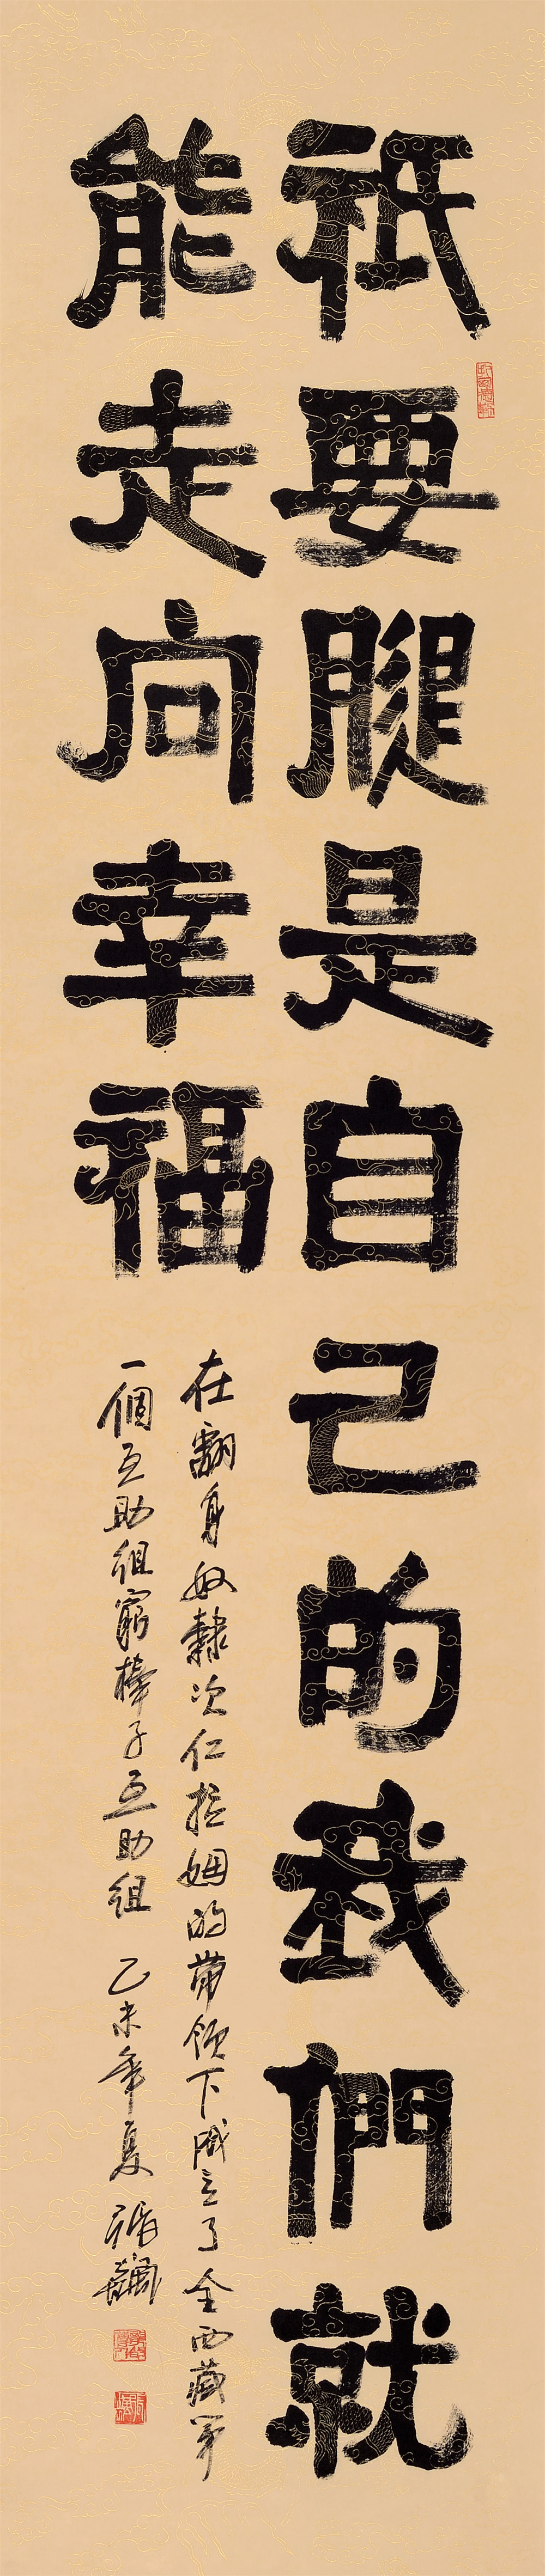 祇要腿是自己的我們就
能走向幸福
在翻身奴隸次仁拉姆的帶領下成立了全西藏第
一個互助組窮棒子互助組 乙未年夏 張飆